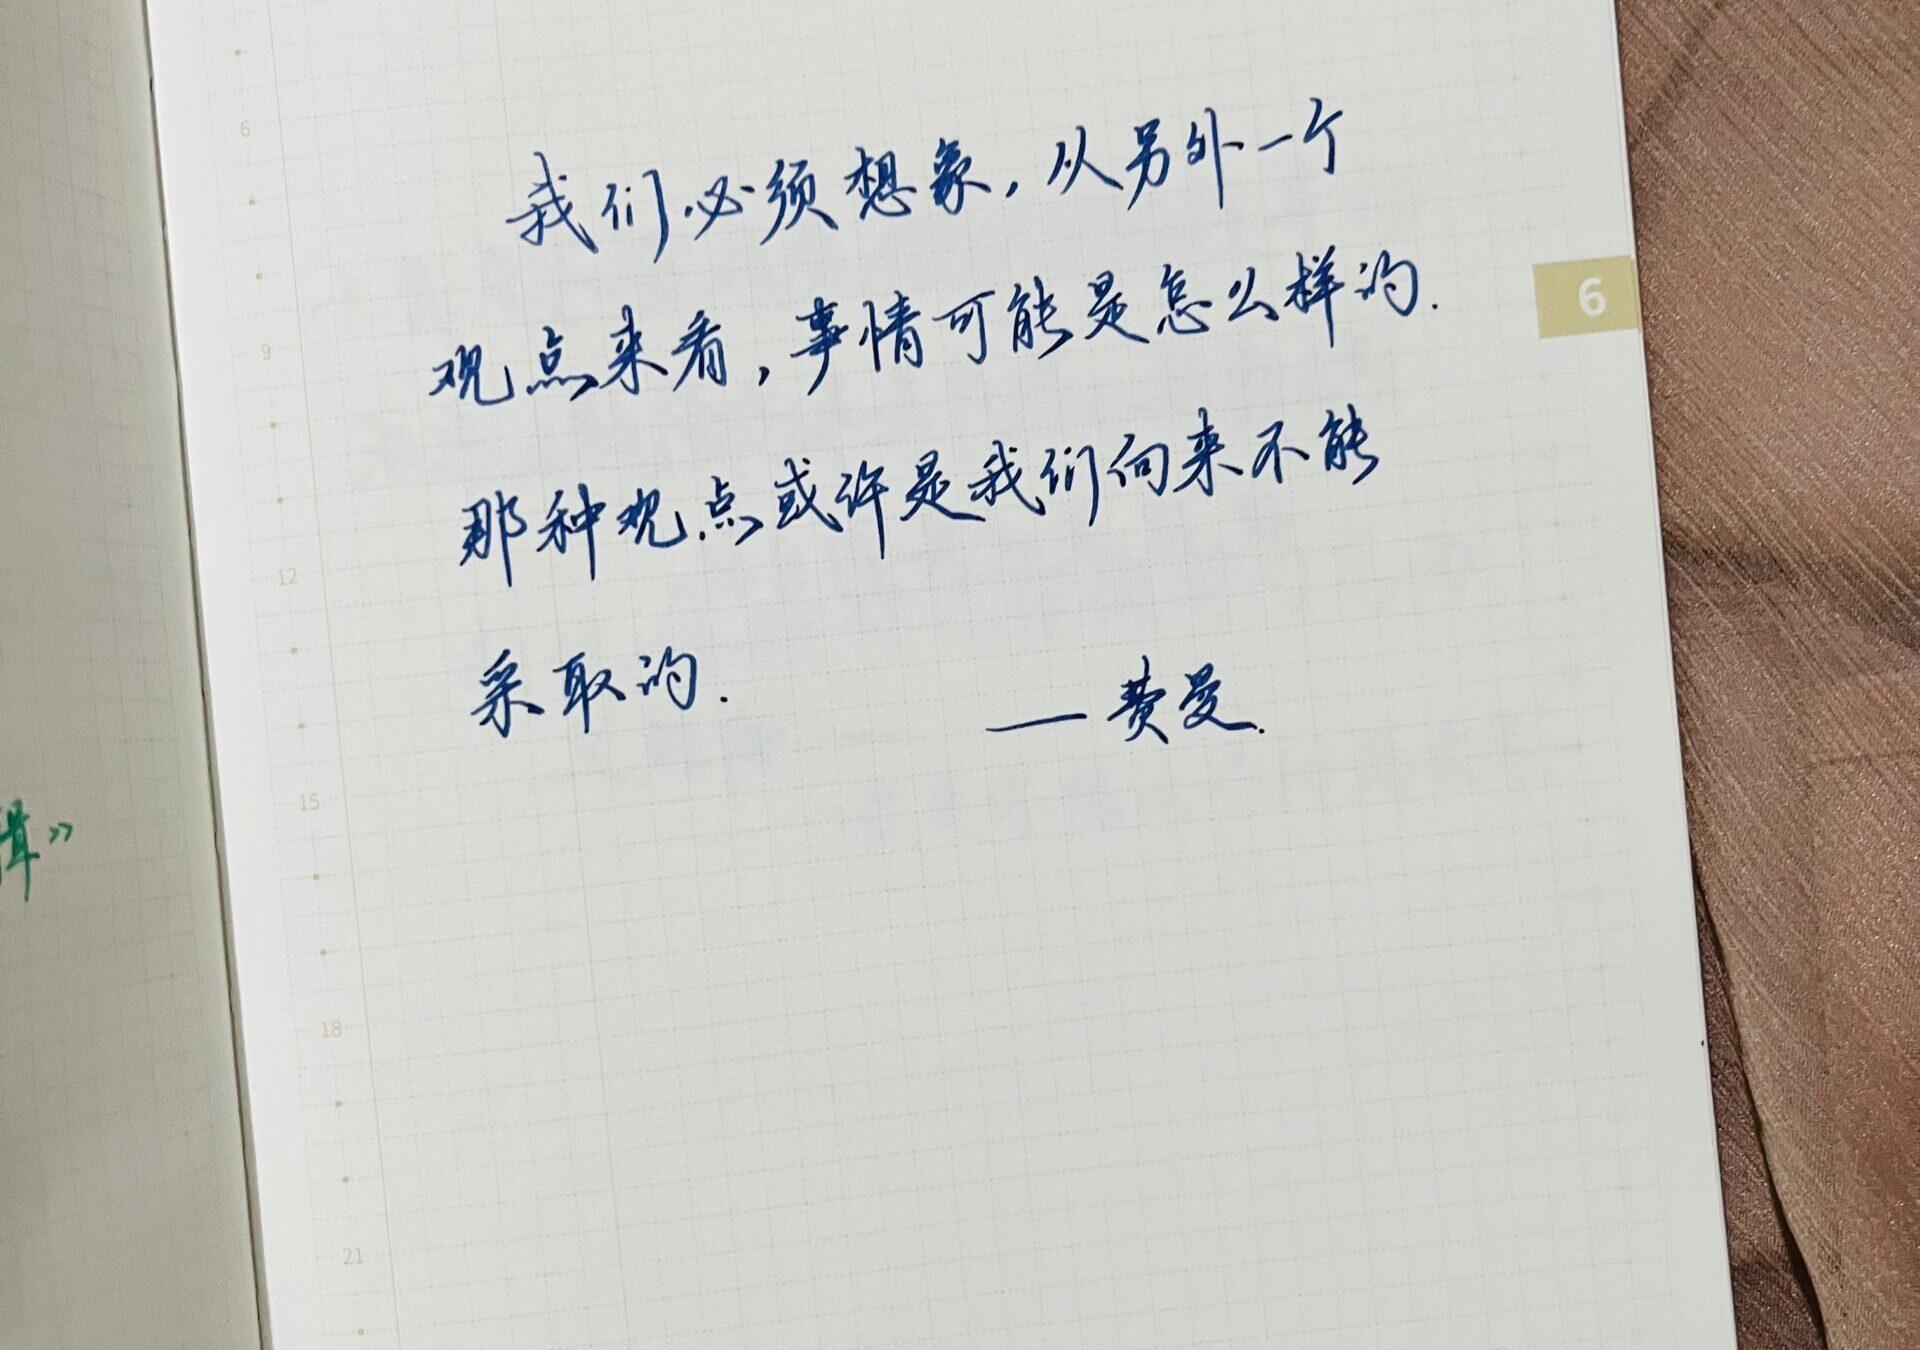 6
我们必须想象,从另外一个
6
观点来看,事情可能是怎么样的.
9
那种观点或许是我们向来不能
12
采取的.
——费曼.
15
辑》
18
21